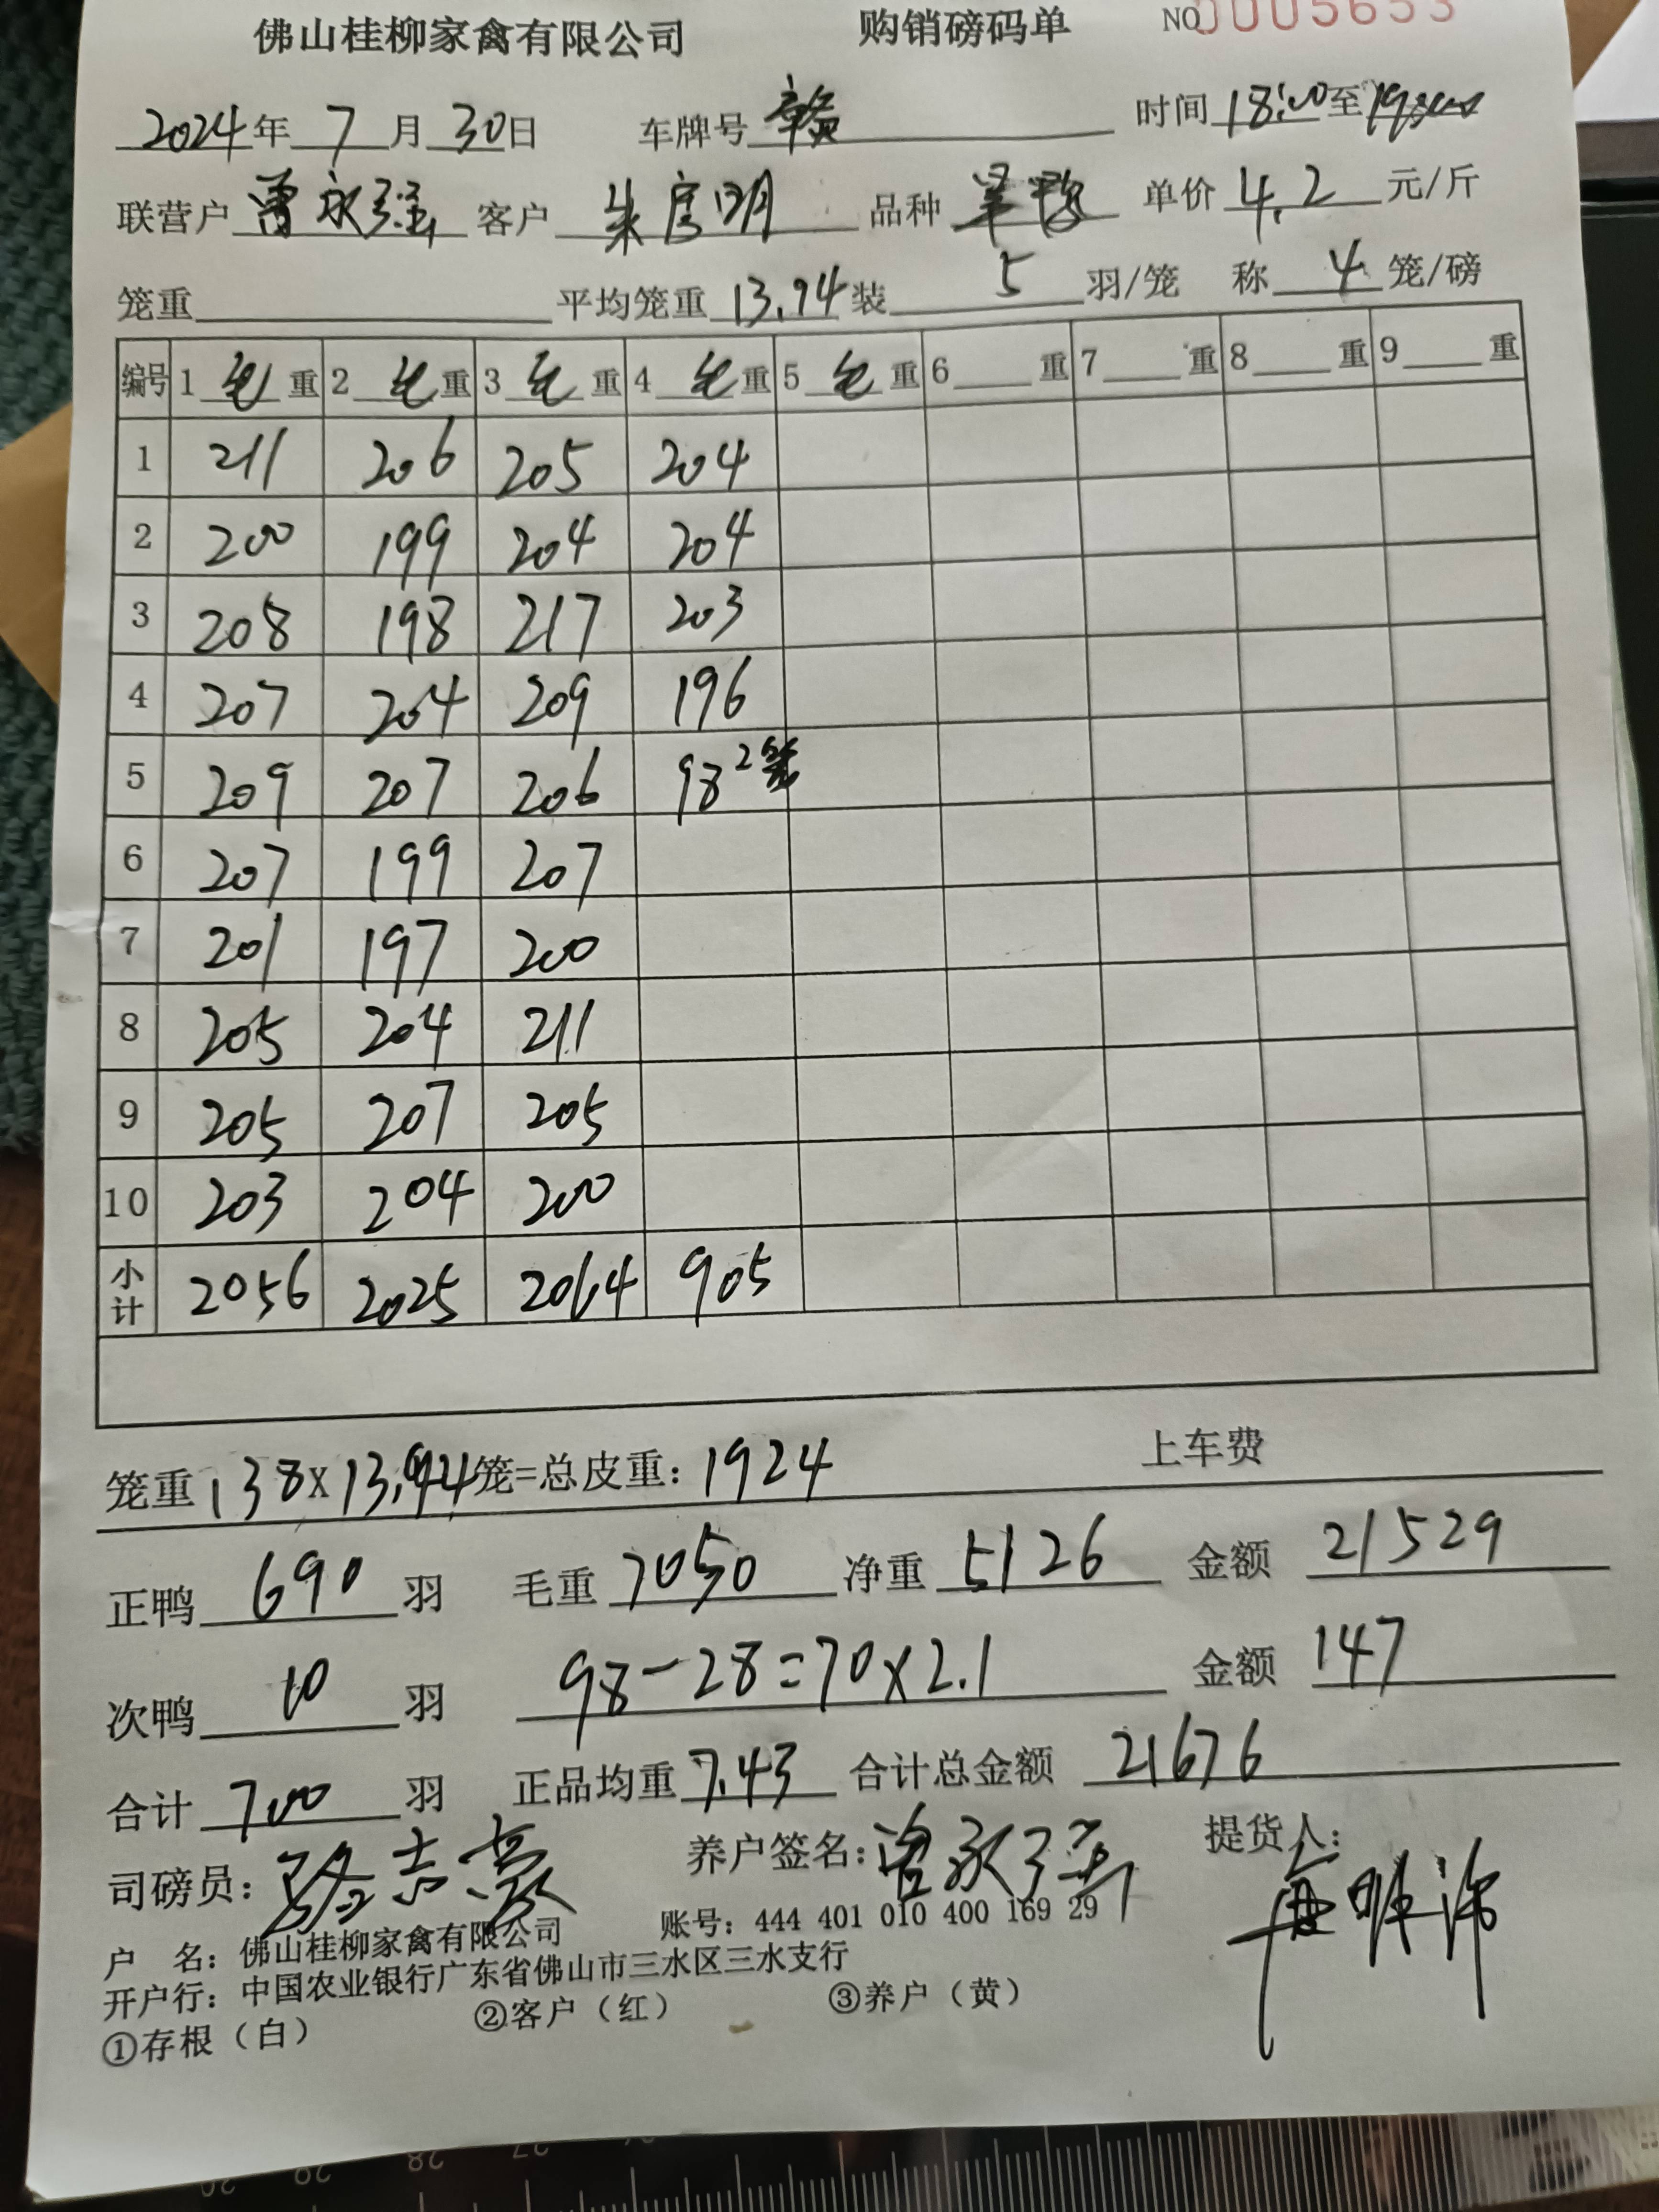 佛山桂柳家禽有限公司 购销磅码单 NO 0005653
2024年 7月 30日 车牌号 赣 时间 18:00 至
联营户 曾永强 客户 朱 明 品种 单价 4.2 元/斤
笼重 平均笼重 13.94 装 5 羽/笼 称 4 笼/磅
编号 1 毛 重 2 毛 重 3 毛 重 4 毛 重 5 毛 重 6 重 7 重 8 重 9 重
1 211 206 205 204
2 200 199 204 204
3 208 198 217 203
4 207 204 209 196
5 209 207 206 98 2笼
6 207 199 207
7 201 197 200
8 205 204 211
9 205 207 205
10 203 204 200
小计 2056 2025 2064 905
笼重 138 x 13.94 笼=总皮重: 1924 上车费
正鸭 690 羽 毛重 7050 净重 5126 金额 21529
次鸭 10 羽 98-28=70x2.1 金额 147
合计 700 羽 正品均重 7.43 合计总金额 21676
司磅员: 骆志豪 养户签名: 曾永强 提货人:
户 名: 佛山桂柳家禽有限公司 账号: 444 401 010 400 169 29
开户行: 中国农业银行广东省佛山市三水区三水支行
①存根(白) ②客户(红) ③养户(黄)
27 28 29 30